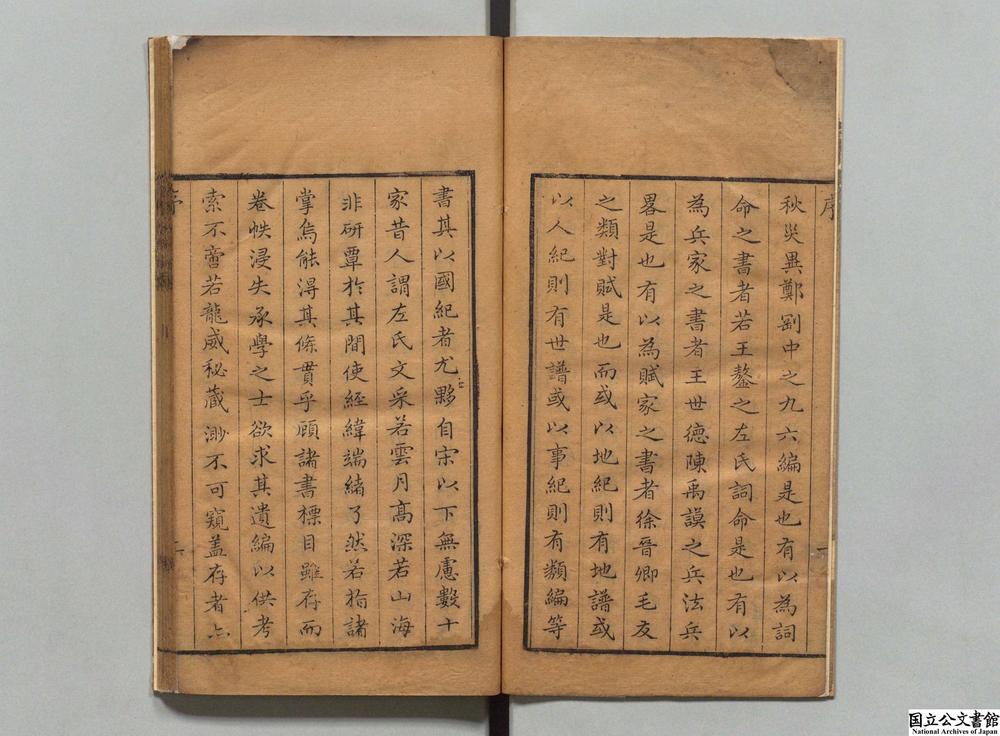 序
秋災異鄭劉中之九六編是也有以為詞
命之書者若王鏊之左氏詞命是也有以
為兵家之書者王世德陳禹謨之兵法兵
畧是也有以為賦家之書者徐晉卿毛友
之類對賦是也而或以地紀則有地譜或
以人紀則有世譜或以事紀則有類編等
一
書其以國紀者尤夥自宋以下無慮數十
家昔人謂左氏文采若雲月高深若山海
非研覃於其間使經緯端緒了然若指諸
掌烏能淂其條貫乎顧諸書標目雖存而
卷帙浸失承學之士欲求其遺編以供考
索不啻若龍威秘蔵渺不可窺盖存者亦
序
国立公文書館
National Archives of Japan